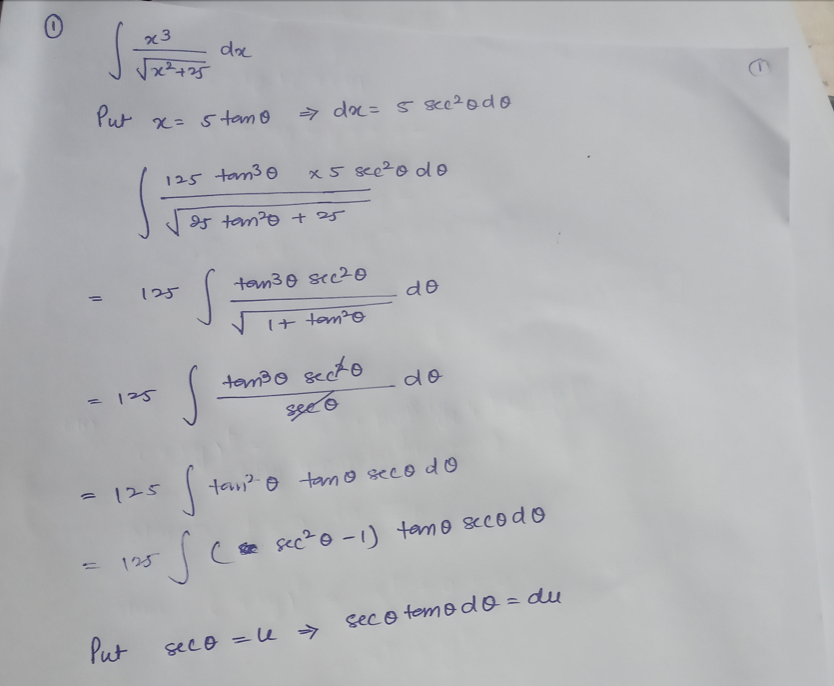 ① ∫ x³/√(x²+25) dx
①
Put x = 5 tanθ ⇒ dx = 5 sec²θ dθ
∫ (125 tan³θ × 5 sec²θ dθ)/√(25 tan²θ + 25)
= 125 ∫ (tan³θ sec²θ)/√(1 + tan²θ) dθ
= 125 ∫ (tan³θ sec²θ)/(secθ) dθ
= 125 ∫ tan²θ tanθ secθ dθ
= 125 ∫ (sec²θ −1) tanθ secθ dθ
Put secθ = u ⇒ secθ tanθ dθ = du